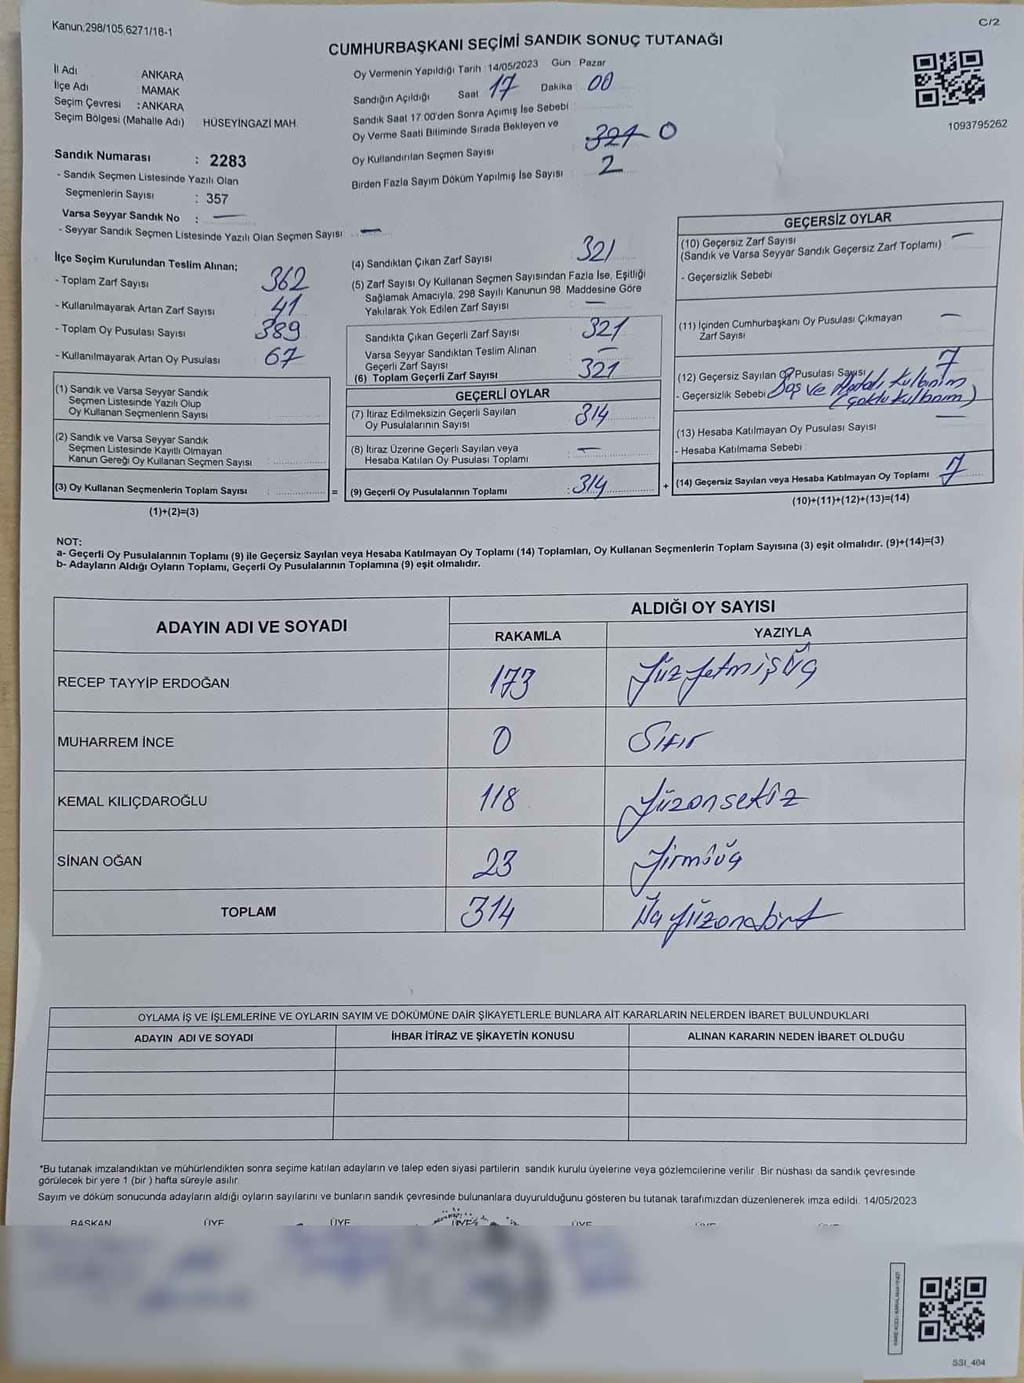 Kanun:298/105.6271/18-1
C/2
CUMHURBAŞKANI SEÇİMİ SANDIK SONUÇ TUTANAĞI
İl Adı ANKARA
İlçe Adı MAMAK
Seçim Çevresi : ANKARA
Seçim Bölgesi (Mahalle Adı) HÜSEYİNGAZİ MAH.
Oy Vermenin Yapıldığı Tarih : 14/05/2023 Gün Pazar
Sandığın Açıldığı Saat 17 Dakika 00
Sandık Saat 17.00'den Sonra Açımış İse Sebebi
Oy Verme Saati Bitiminde Sırada Bekleyen ve
Oy Kullandırılan Seçmen Sayısı 321 0
Birden Fazla Sayım Döküm Yapılmış İse Sayısı 2
1093795262
Sandık Numarası : 2283
- Sandık Seçmen Listesinde Yazılı Olan
Seçmenlerin Sayısı : 357
Varsa Seyyar Sandık No : —
- Seyyar Sandık Seçmen Listesinde Yazılı Olan Seçmen Sayısı: —
İlçe Seçim Kurulundan Teslim Alınan;
- Toplam Zarf Sayısı 362
- Kullanılmayarak Artan Zarf Sayısı 41
- Toplam Oy Pusulası Sayısı 389
- Kullanılmayarak Artan Oy Pusulası 67
(1) Sandık ve Varsa Seyyar Sandık
Seçmen Listesinde Yazılı Olup
Oy Kullanan Seçmenlerin Sayısı
(2) Sandık ve Varsa Seyyar Sandık
Seçmen Listesinde Kayıtlı Olmayan
Kanun Gereği Oy Kullanan Seçmen Sayısı
(3) Oy Kullanan Seçmenlerin Toplam Sayısı : =
(1)+(2)=(3)
(4) Sandıktan Çıkan Zarf Sayısı 321
(5) Zarf Sayısı Oy Kullanan Seçmen Sayısından Fazla İse, Eşitliği
Sağlamak Amacıyla, 298 Sayılı Kanunun 98. Maddesine Göre
Yakılarak Yok Edilen Zarf Sayısı —
Sandıkta Çıkan Geçerli Zarf Sayısı 321
Varsa Seyyar Sandıktan Teslim Alınan
Geçerli Zarf Sayısı —
(6) Toplam Geçerli Zarf Sayısı 321
GEÇERLİ OYLAR
(7) İtiraz Edilmeksizin Geçerli Sayılan
Oy Pusulalarının Sayısı 314
(8) İtiraz Üzerine Geçerli Sayılan veya
Hesaba Katılan Oy Pusulası Toplamı —
(9) Geçerli Oy Pusulalarının Toplamı : 314 +
GEÇERSİZ OYLAR
(10) Geçersiz Zarf Sayısı —
(Sandık ve Varsa Seyyar Sandık Geçersiz Zarf Toplamı)
- Geçersizlik Sebebi
(11) İçinden Cumhurbaşkanı Oy Pusulası Çıkmayan
Zarf Sayısı —
(12) Geçersiz Sayılan Oy Pusulası Sayısı 7
- Geçersizlik Sebebi Boş ve Hatalı kullanım
(çoklu kullanım)
(13) Hesaba Katılmayan Oy Pusulası Sayısı —
- Hesaba Katılmama Sebebi
(14) Geçersiz Sayılan veya Hesaba Katılmayan Oy Toplamı 7
(10)+(11)+(12)+(13)=(14)
NOT:
a- Geçerli Oy Pusulalarının Toplamı (9) ile Geçersiz Sayılan veya Hesaba Katılmayan Oy Toplamı (14) Toplamları, Oy Kullanan Seçmenlerin Toplam Sayısına (3) eşit olmalıdır. (9)+(14)=(3)
b- Adayların Aldığı Oyların Toplamı, Geçerli Oy Pusulalarının Toplamına (9) eşit olmalıdır.
ADAYIN ADI VE SOYADI
ALDIĞI OY SAYISI
RAKAMLA YAZIYLA
RECEP TAYYİP ERDOĞAN 173 Yüzyetmişüç
MUHARREM İNCE 0 Sıfır
KEMAL KILIÇDAROĞLU 118 Yüzonsekiz
SİNAN OĞAN 23 Yirmiüç
TOPLAM 314 Üçyüzondört
OYLAMA İŞ VE İŞLEMLERİNE VE OYLARIN SAYIM VE DÖKÜMÜNE DAİR ŞİKAYETLERLE BUNLARA AİT KARARLARIN NELERDEN İBARET BULUNDUKLARI
ADAYIN ADI VE SOYADI İHBAR İTİRAZ VE ŞİKAYETİN KONUSU ALINAN KARARIN NEDEN İBARET OLDUĞU
*Bu tutanak imzalandıktan ve mühürlendikten sonra seçime katılan adayların ve talep eden siyasi partilerin sandık kurulu üyelerine veya gözlemcilerine verilir. Bir nüshası da sandık çevresinde
görülecek bir yere 1 (bir) hafta süreyle asılır.
Sayım ve döküm sonucunda adayların aldığı oyların sayılarını ve bunların sandık çevresinde bulunanlara duyurulduğunu gösteren bu tutanak tarafımızdan düzenlenerek imza edildi. 14/05/2023
BAŞKAN ÜYE ÜYE ÜYE ÜYE
SSI_404